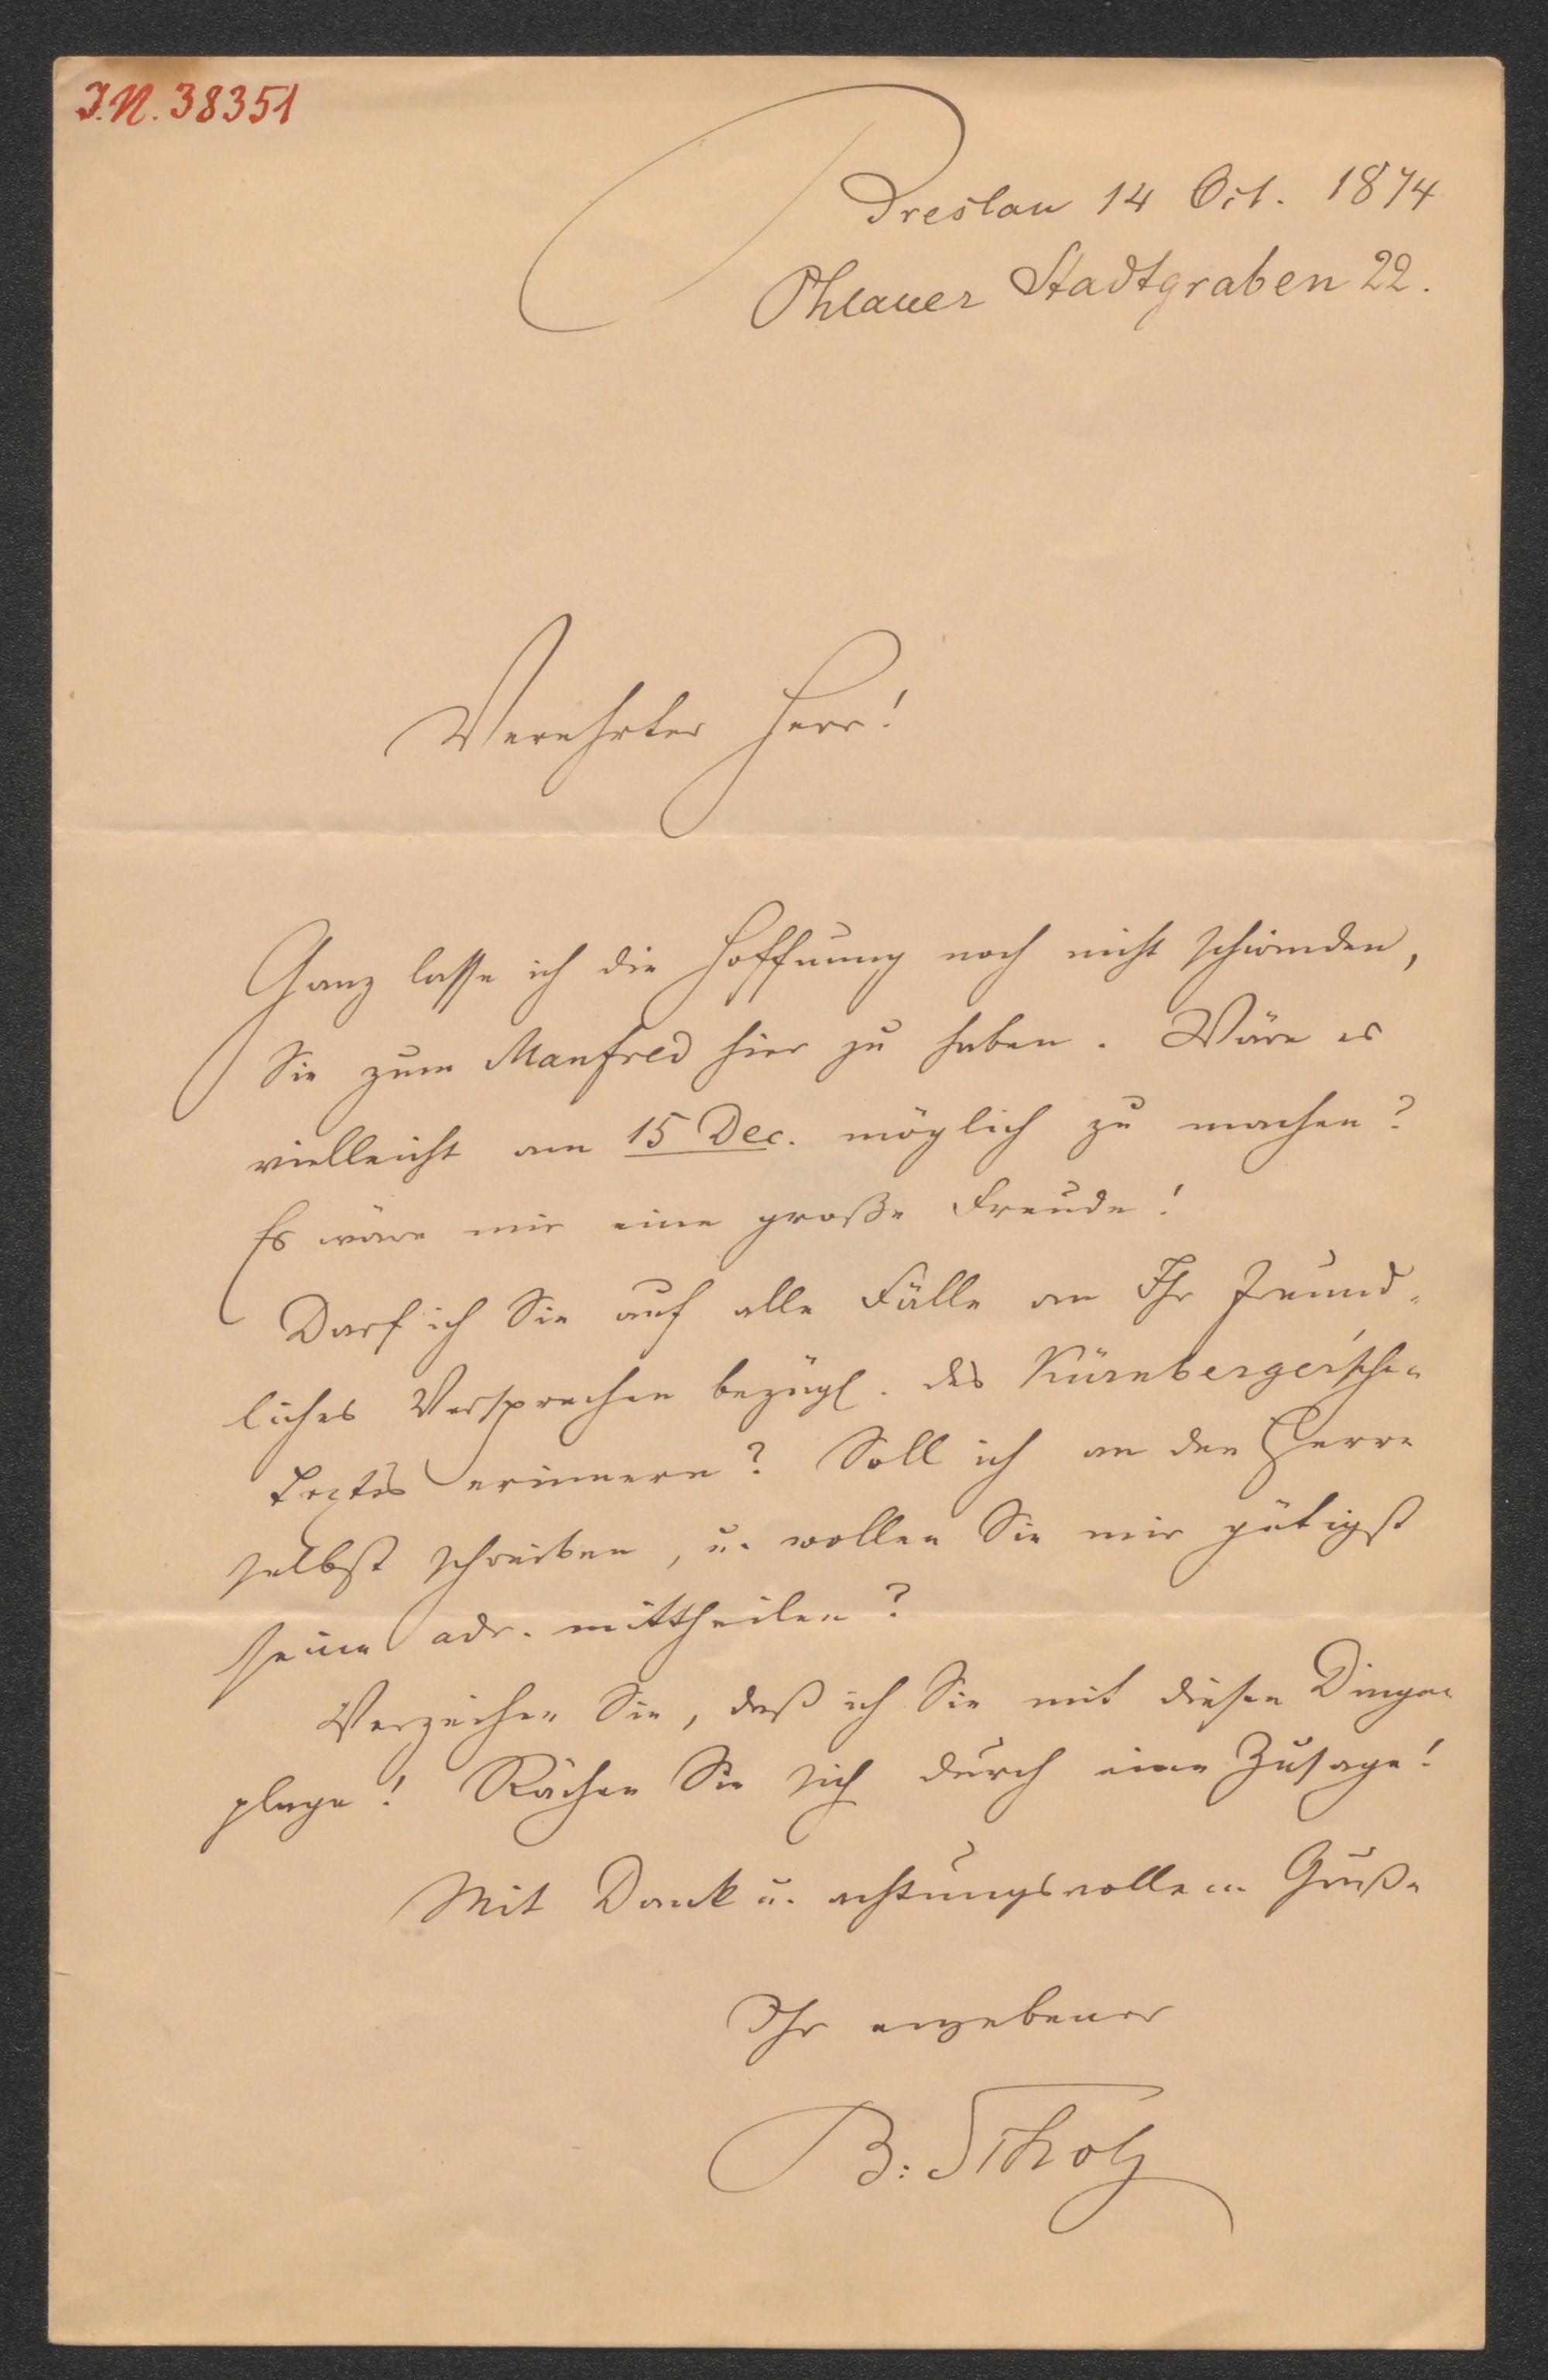 I.N. 38351
Breslau 14 Oct. 1874
Ohlauer Stadtgraben 22.
Verehrter Herr!
Ganz lasse ich die Hoffnung noch nicht schwinden,
Sie zum Manfred hier zu haben. Wäre es
vielleicht am 15 Dec. möglich zu machen?
Es wäre mir eine große Freude!
Darf ich Sie auf alle Fälle an Ihr freund-
liches Versprechen bezügl. des Kürnberger'schen
Textes erinnern? Soll ich an den Herrn
selbst schreiben, u. wollen Sie mir gütigst
seine Adr. mittheilen?
Verzeihen Sie, daß ich Sie mit diesen Dingen
plage! Rächen Sie sich durch eine Zusage!
Mit Dank u. achtungsvollem Gruße
Ihr ergebener
B: Scholz